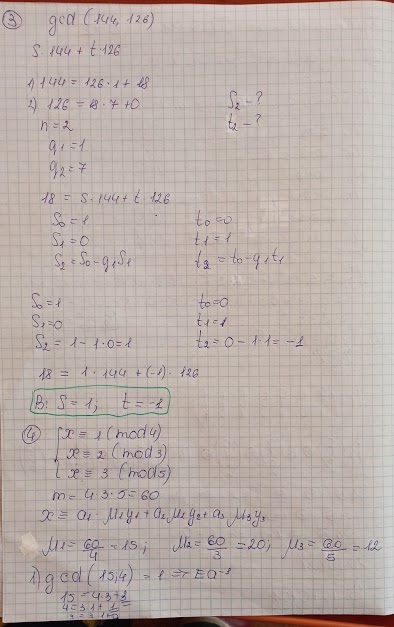 ③ gcd (144, 126)
S·144 + t·126
1) 144 = 126·1 + 18
2) 126 = 18·7 + 0
S₂ - ?
n = 2
t₂ - ?
q₁ = 1
q₂ = 7
18 = S·144 + t·126
S₀ = 1 t₀ = 0
S₁ = 0 t₁ = 1
S₂ = S₀ - q₁S₁ t₂ = t₀ - q₁t₁
S₀ = 1 t₀ = 0
S₁ = 0 t₁ = 1
S₂ = 1 - 1·0 = 1 t₂ = 0 - 1·1 = -1
18 = 1·144 + (-1)·126
B: S = 1; t = -1
④ { x ≡ 1 (mod 4)
x ≡ 2 (mod 3)
x ≡ 3 (mod 5)
m = 4·3·5 = 60
x ≡ a₁ M₁y₁ + a₂ M₂y₂ + a₃ M₃y₃
M₁ = 60/4 = 15; M₂ = 60/3 = 20; M₃ = 60/5 = 12
1) gcd (15,4) = 1 => Ea⁻¹
15 = 4·3 + 3
4 = 3·1 + 1